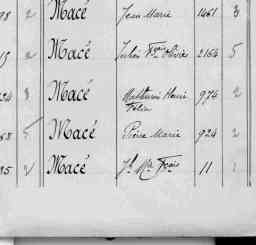 98 2 Macé Jean Marie 1461 3
15 2 Macé Julien Fçois Olivier 2164 5
24 3 Macé Mathurin Henri 974 2
Félix
68 5 Macé Pierre Marie 924 2
35 2 Macé Jh Mie Fçois 11 1